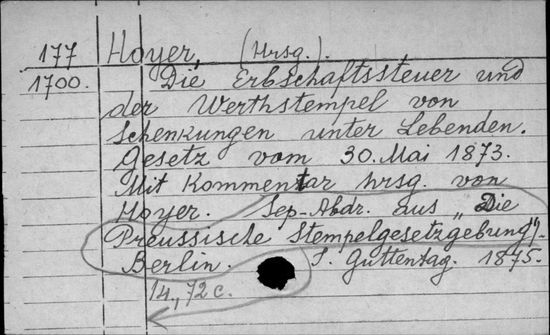 177 Hoyer, (Hrsg.).
1700. Die Erbschaftssteuer und
der Werthstempel von
Schenkungen unter Lebenden.
Gesetz vom 30. Mai 1873.
Mit Kommentar hrsg. von
Hoyer. Sep-Abdr. aus „Die
Preussische Stempelgesetzgebung“.-
Berlin. J. Guttentag. 1875.
14, 72 c.